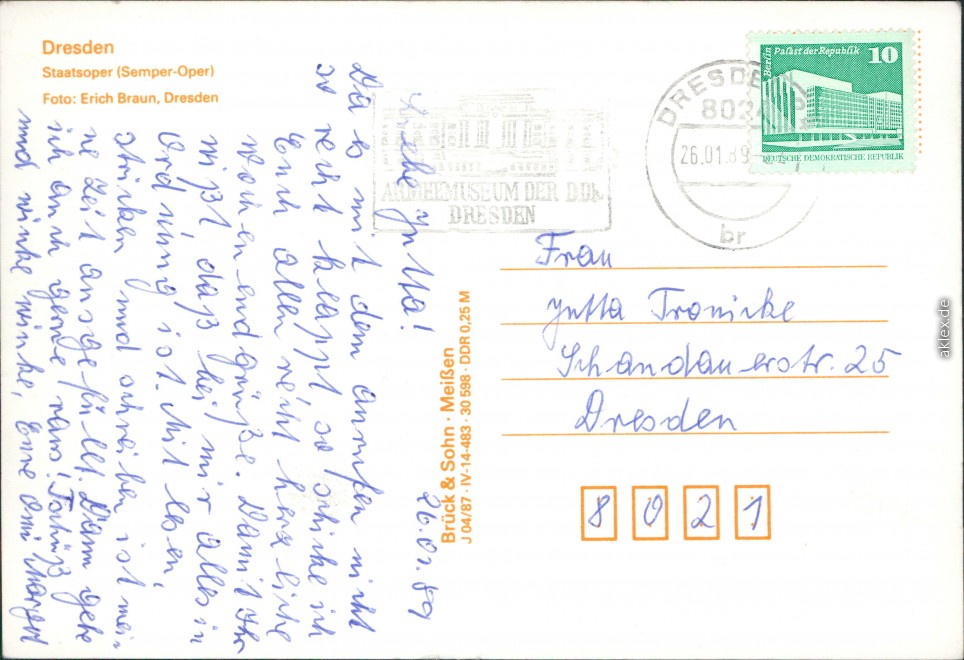 Dresden
Staatsoper (Semper-Oper)
Foto: Erich Braun, Dresden
Liebe Jutta! 26.01.89
Da es mit dem anrufen nicht
so recht klappt, so schicke ich
Euch allen recht herzliche
Wochenendgrüße. Damit Ihr
wißt daß bei mir alles in
Ordnung ist. Mit lesen,
stricken und schreiben ist mei-
ne Zeit ausgefüllt. Dann gehe
ich auch gerne raus! Tschüß
und winke winke, Eure Omi Margot
Brück & Sohn · Meißen
J 04/87 · IV-14-483 · 30 598 · DDR 0,25 M
ARMEEMUSEUM DER DDR
DRESDEN
DRESDEN
802
26.01.89
br
Berlin Palast der Republik 10
DEUTSCHE DEMOKRATISCHE REPUBLIK
Frau
Jutta Tronicke
Schandauerstr. 25
Dresden
8 0 2 1
aklex.de